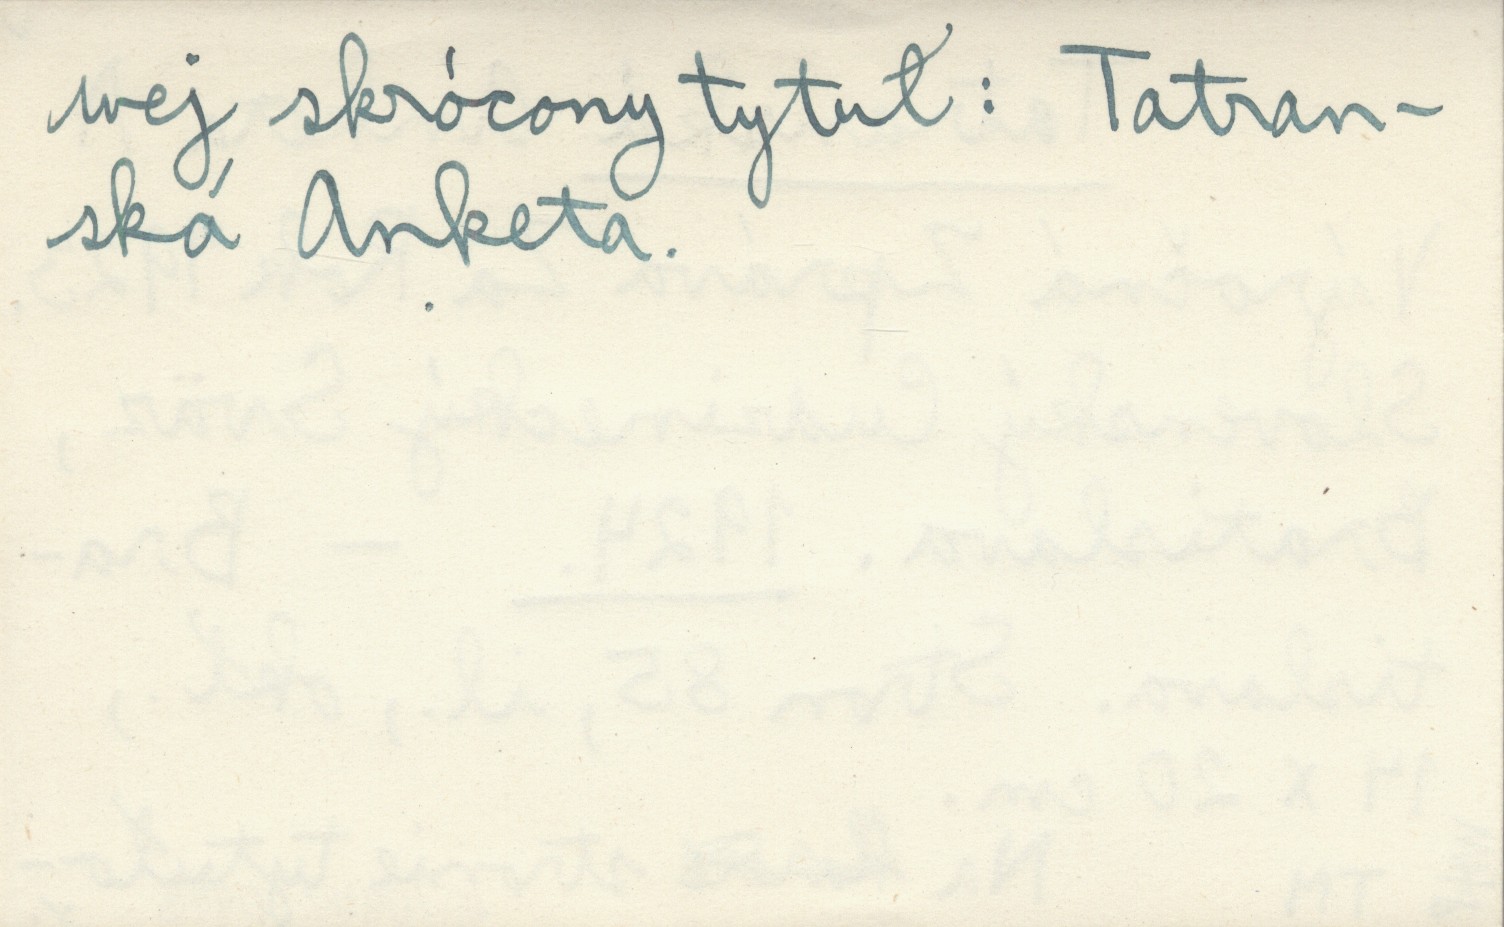 wej skrócony tytuł: Tatran-
ská Anketa.